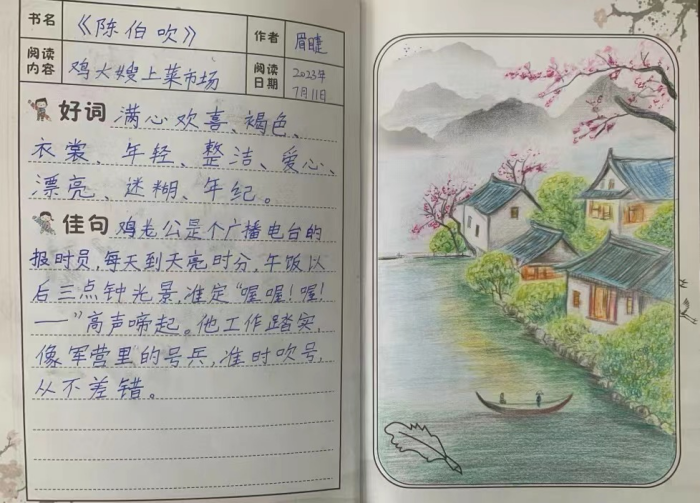 书名 《陈伯吹》 作者 眉睫
阅读内容 鸡大嫂上菜市场 阅读日期 2023年7月11日
好词 满心欢喜、褐色、
衣裳、年轻、整洁、爱心、
漂亮、迷糊、年纪。
佳句 鸡老公是个广播电台的
报时员,每天到天亮时分,午饭以
后三点钟光景,准定“喔喔!喔!
——”高声啼起。他工作踏实,
像军营里的号兵,准时吹号,
从不差错。